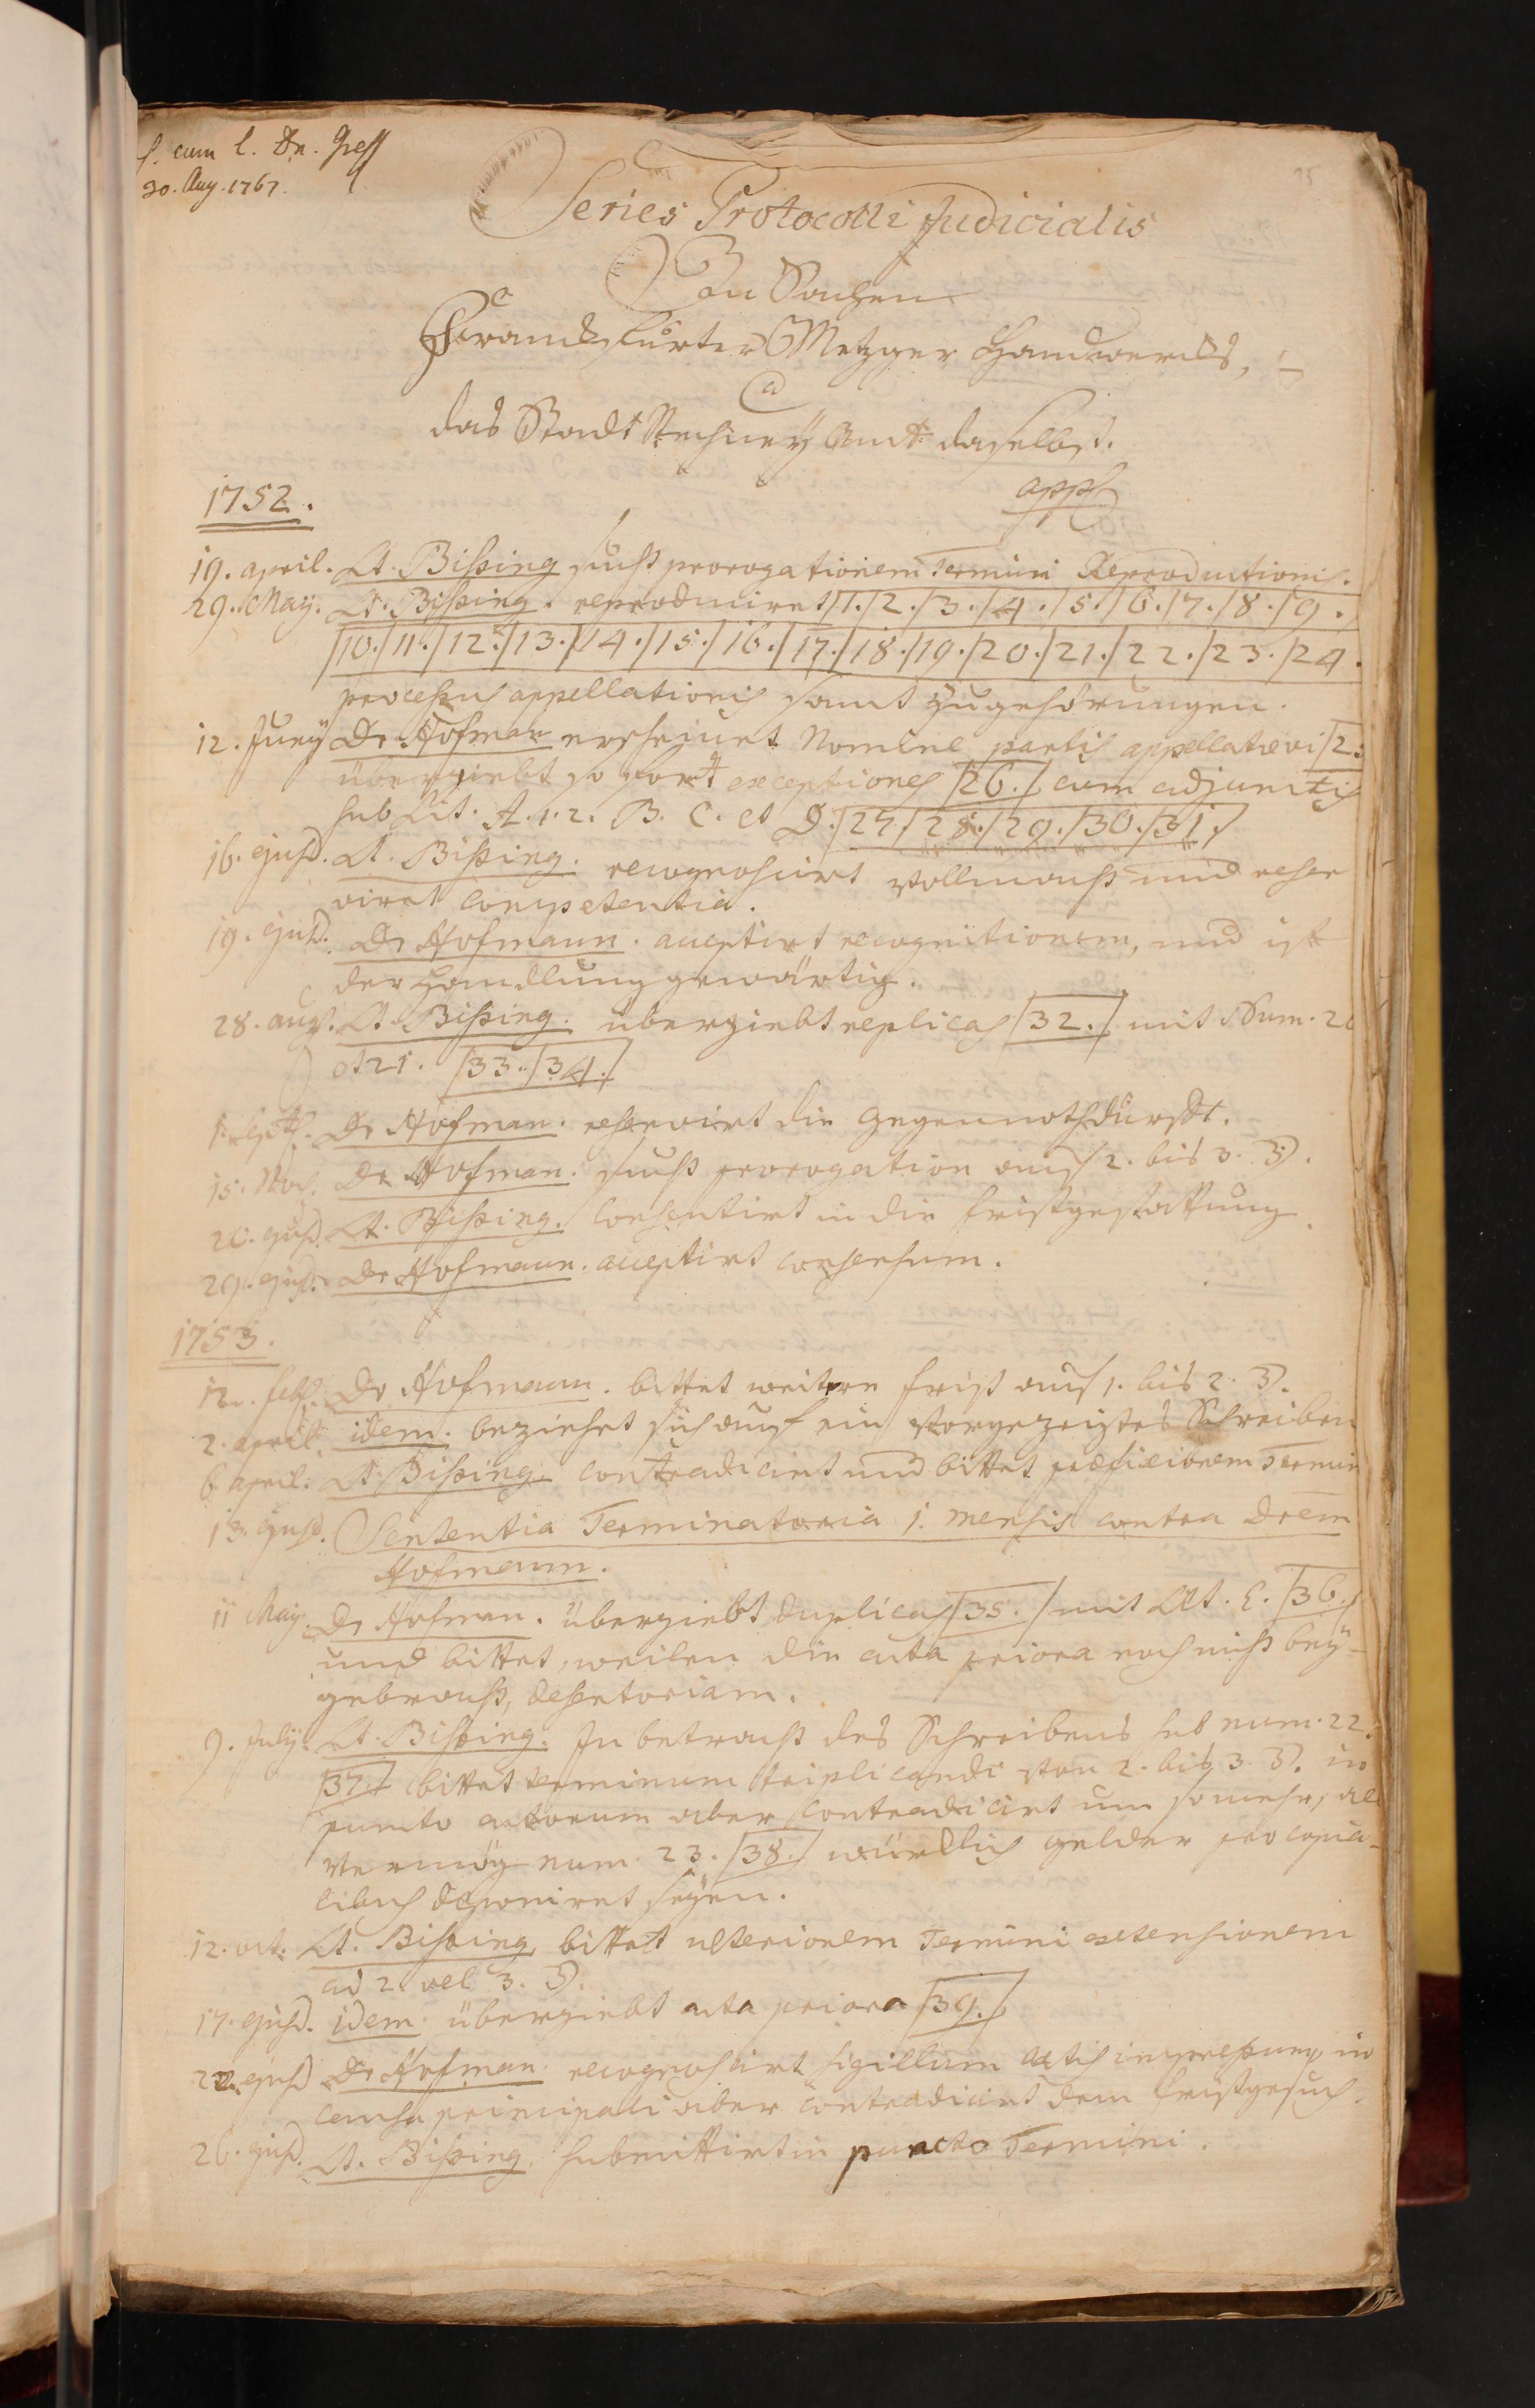 s. cum l. Dn. Greff
30. Aug. 1767.
Series Protocolli Judicialis
In Sachen
Franckfurter Metzger Handwercks,
C
das Stadt Rechney Amt daselbst.
app.
1752.
19. april. Lt. Bißing sucht prorogationem Termini Reproductionis.
29. May. Lt. Bißing. reproduciret /1./2./3./4./5./6./7./8./9.
/10./11./12./13./14./15./16./17./18./19./20./21./22./23./24.
processus appellationis samt Zugehörungen.
12. Juny Dr. Hofman erscheinet Nomine partis appellatae vi /2.
übergiebt so fort exceptiones /26./ cum adjunctis
sub Lit. A. 1. 2. B. C. et D. /27./28./29./30./31./
16. ejusd. Lt. Bißing. recognoscirt Vollmacht und reser
viret competentia.
19. ejusd. Dr Hofmann. acceptirt recognitionem, und ist
der Handlung gewärtig.
28. aug. Lt. Bißing. übergiebt replicas /32./ mit Num. 20
et 21. /33./34./
1. sept. Dr Hofman. reservirt die Gegennothdurfft.
15. Nov. Dr Hofman. sucht prorogation auf 2. bis 3. M.
20. ejusd. Lt. Bißing. Consentirt in die fristgestattung.
29. ejusd. Dr Hofmann. acceptirt consensum.
1753.
12. febr. Dr Hofmann. bittet weitere frist auf 1. bis 2. M.
2. april. idem. beziehet sich auf ein Vorgezeigtes Schreiben
6 april. Lt Bißing. Contradicirt und bittet praefixionem Termin
13. ejusd. Sententia Terminatoria 1. mensis contra Drem
Hofmann.
11 May. Dr Hofman. übergiebt duplicas /35./ mit Lit. E. /36./
und bittet, weilen die acta priora noch nicht bey-
gebracht, desertoriam.
9. July. Lt. Bißing. In betracht des Schreibens sub num. 22.
/37./ bittet terminum triplicandi von 2. bis 3. M. in
puncto actorum aber contradicirt um so mehr, als
Vermög num. 23. /38./ würcklich gelder pro copia-
libus deponiret seyen.
12. oct. Lt. Bißing bittet ulteriorem Termini extensionem
ad 2. vel 3. M.
17. ejusd. idem. übergiebt acta priora /39./
22. ejusd Dr Hofman. recognoscirt sigillum actis impressum, in
causa principali aber Contradicirt dem fristgesuch.
26. ejusd. Lt. Bißing. submittirt in puncto Termini.